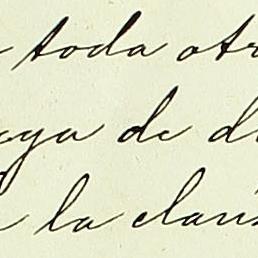 toda otr
de d
la claus